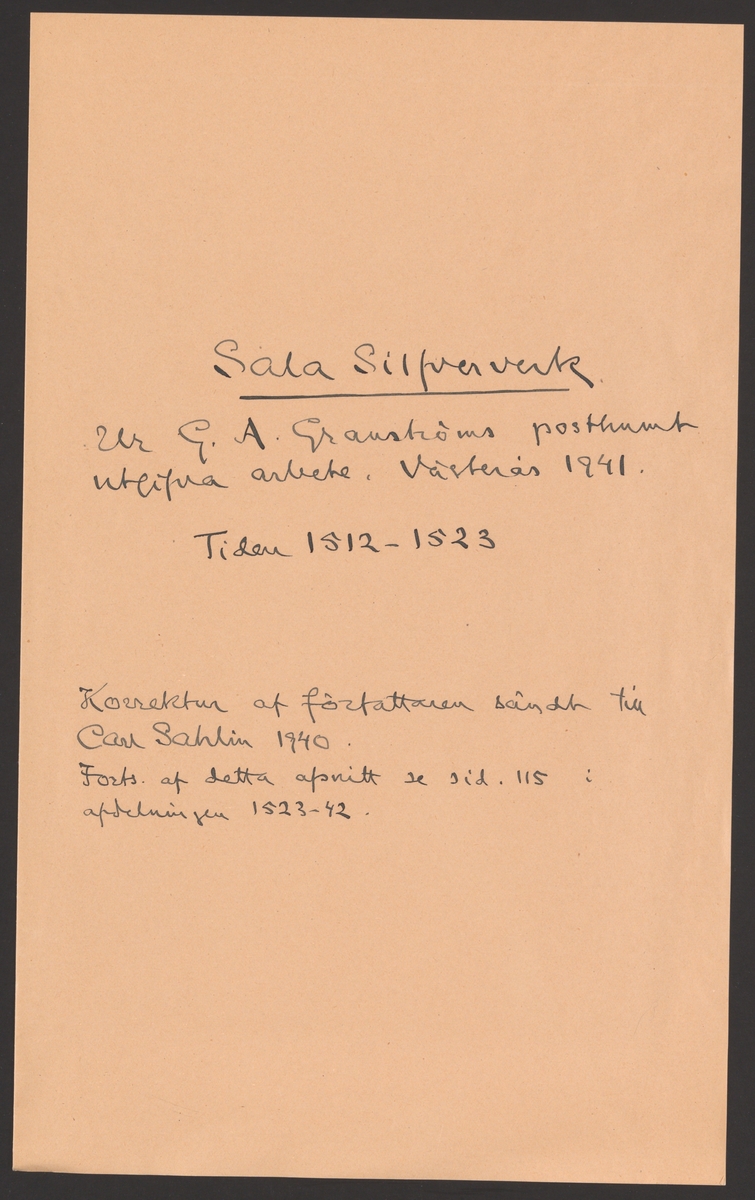 Sala Silfververk.
Ur G. A. Granströms posthumt
utgifna arbete. Västerås 1941.
Tiden 1512-1523
Korrektur af författaren sändt till
Carl Sahlin 1940.
Forts. af detta afsnitt se sid. 115 i
afdelningen 1523-42.